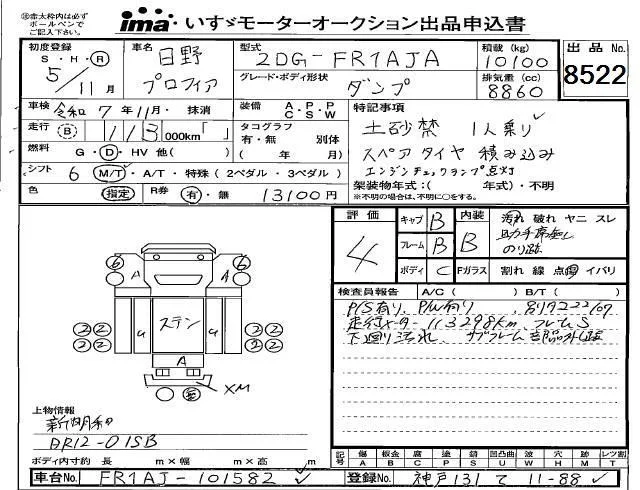 ㊟赤太枠内は必ず
ボールペンで
ご記入下さい。
ima いすゞモーターオークション出品申込書
初度登録
S・H・R
5/11月
車名
日野
プロフィア
型式
2DG-FR1AJA
グレード・ボディ形状
ダンプ
積載(kg)
10100
排気量(cc)
8860
出品No.
8522
車検 令和 7年11月・抹消
走行 B 113000km「 」
燃料 G・D・HV 他( )
シフト 6 M/T・A/T・特殊(2ペダル・3ペダル)
色 指定 R券 有・無 13100円
装備 A・P・P
C・S・W
タコグラフ
有・無 別体
( 年 月)
特記事項
土砂禁 1人乗り✓
スペアタイヤ積み込み
エンジンチェックランプ点灯
架装物年式:( 年式)・不明
※不明の場合は、不明に○をする。
評価
4
キャブ B
フレーム B
ボディ C
内装
B
汚れ 破れ ヤニ スレ
助手席無し
のり跡
Fガラス 割れ 線 点傷 イバリ
検査員報告 A/C( ) B/T( )
P/S有り、P/W有り
走行メーター 113298km、フレームS
下廻り汚れ
6 A A 6
22 u ステン u 22
22 22
A
XM
上物情報
新明和
DR12-01SB
ボディ内寸約 長 m×幅 m×高 m
記号 傷A 板金B 腐C 塗P 錆S 凹凸曲U 波W 穴H 跡M レツ割T
車台No. FR1AJ-101582 ✓
登録No. 神戸131 て 11-88 ✓